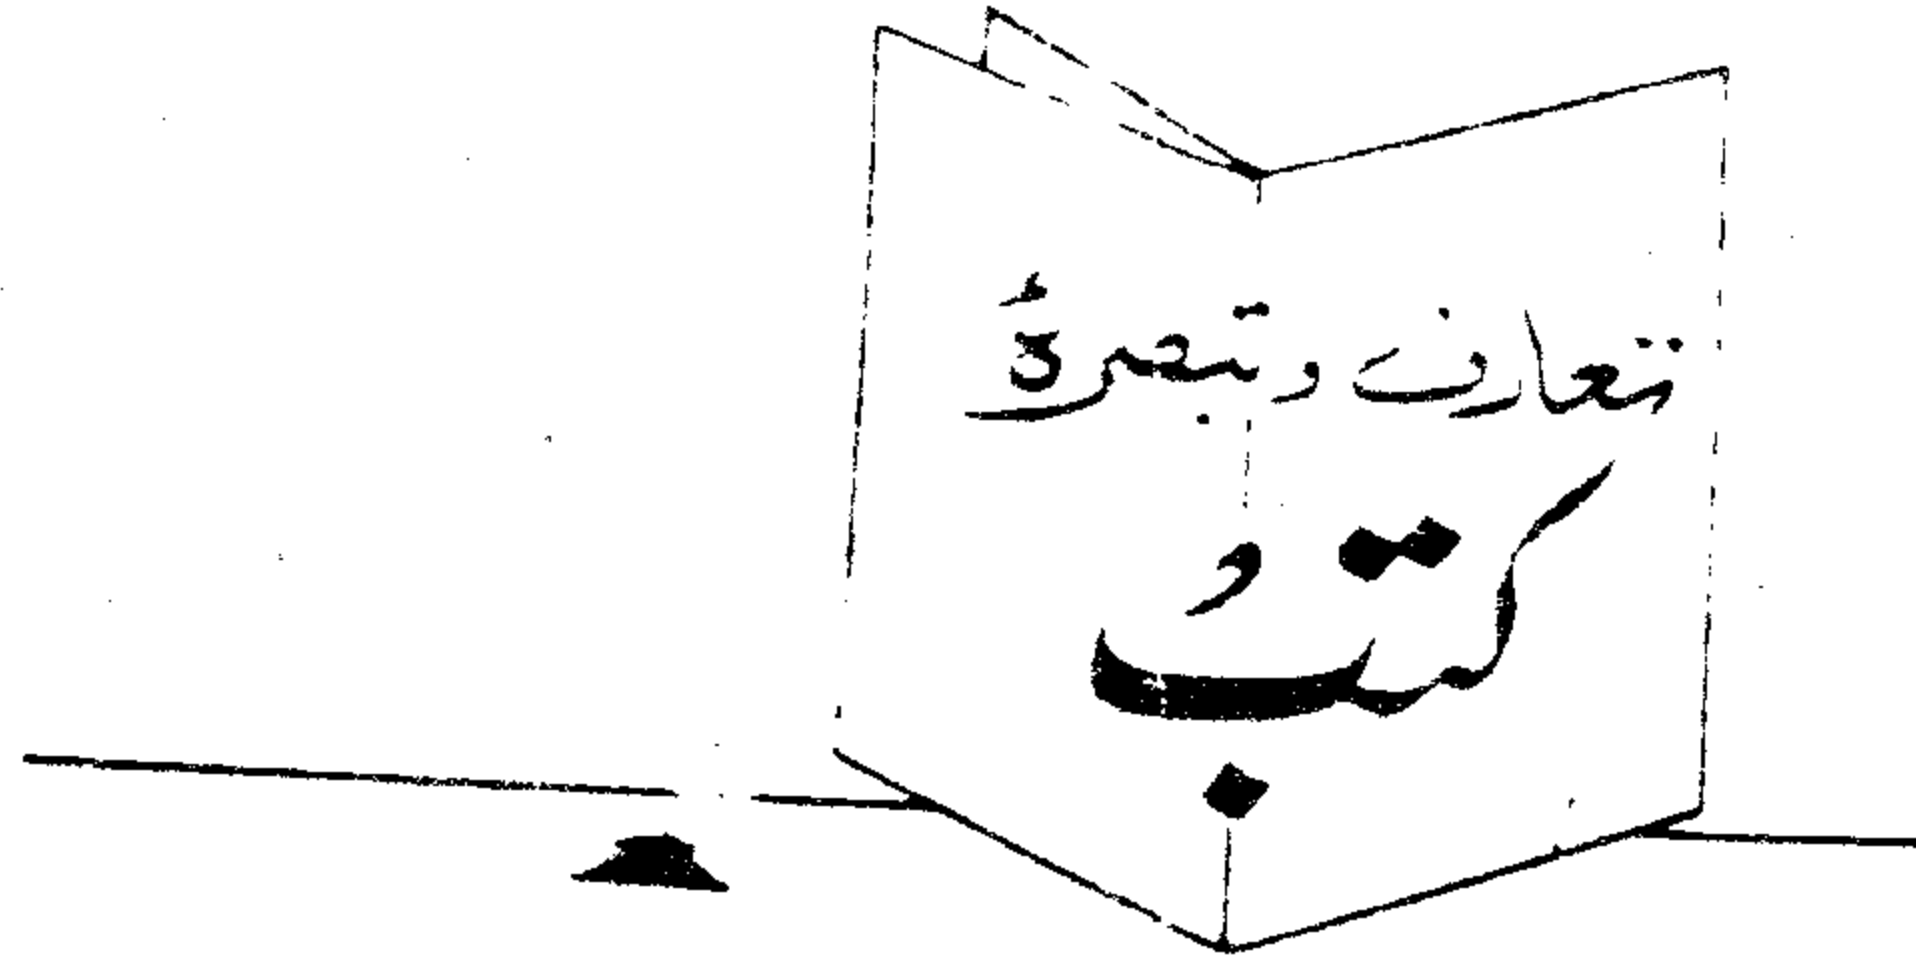 تعارف و تبصرۂ
کتب